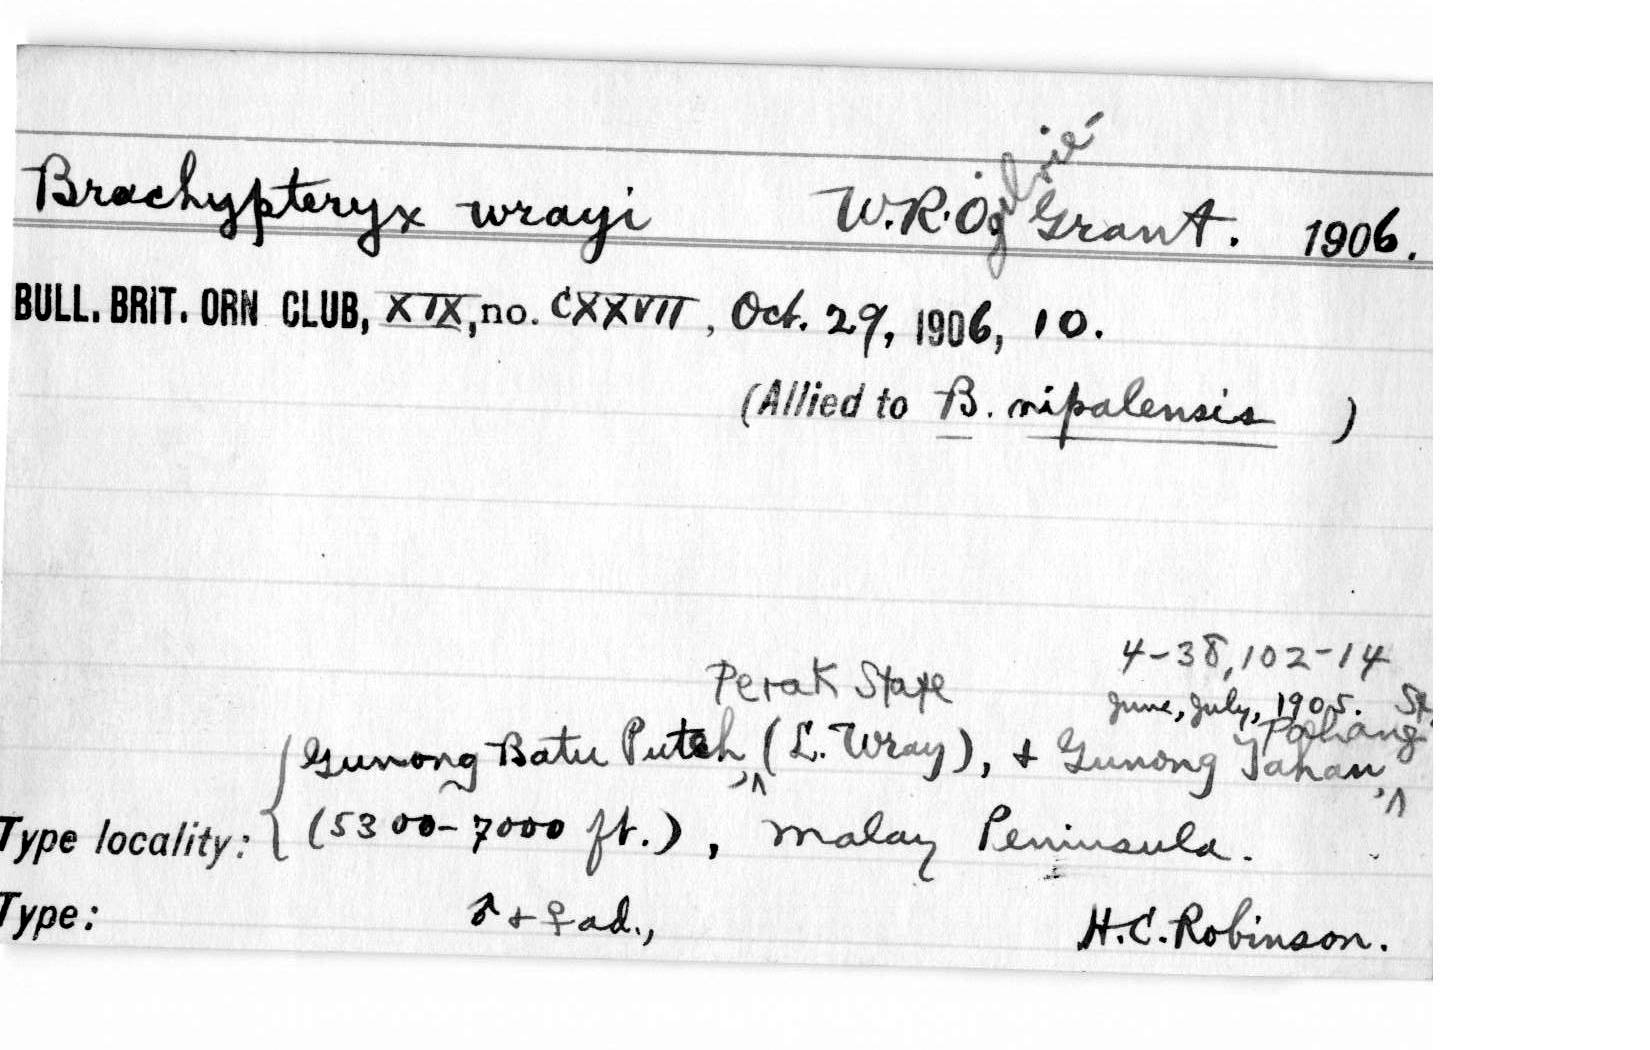 Brachypteryx wrayi W.R. Ogilvie-Grant. 1906.
BULL. BRIT. ORN CLUB, XIX, no. CXXVII, Oct. 29, 1906, 10.
(Allied to B. nipalensis )
4-38, 102-14
Perak State
June, July, 1905.
Pahang
Gunong Batu Puteh, (L. Wray), + Gunong Tahan,
Type locality: (5300-7000 ft.), Malay Peninsula.
Type: ♂ + ♀ ad., H.C. Robinson.